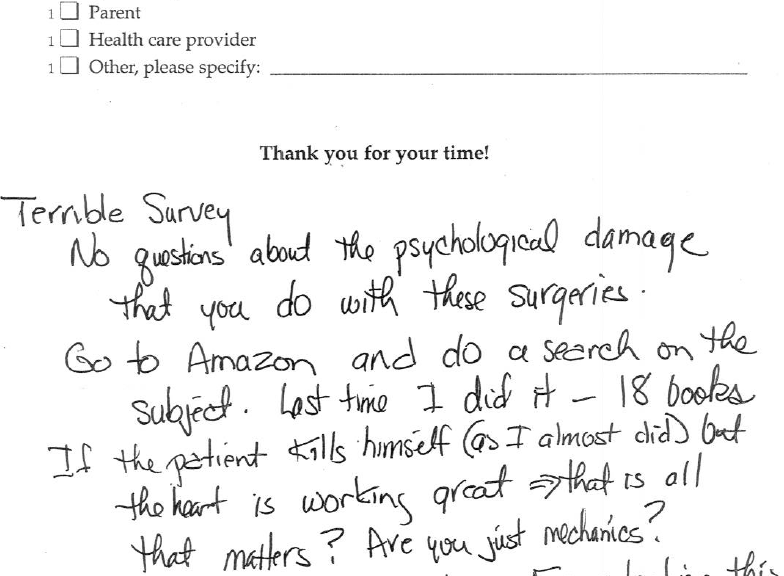 1 ☐ Parent
1 ☐ Health care provider
1 ☐ Other, please specify: ____________________
Thank you for your time!
Terrible Survey
No questions about the psychological damage
that you do with these surgeries.
Go to Amazon and do a search on the
subject. Last time I did it – 18 books
If the patient kills himself (as I almost did) but
the heart is working great ⇒ that is all
that matters? Are you just mechanics?
this